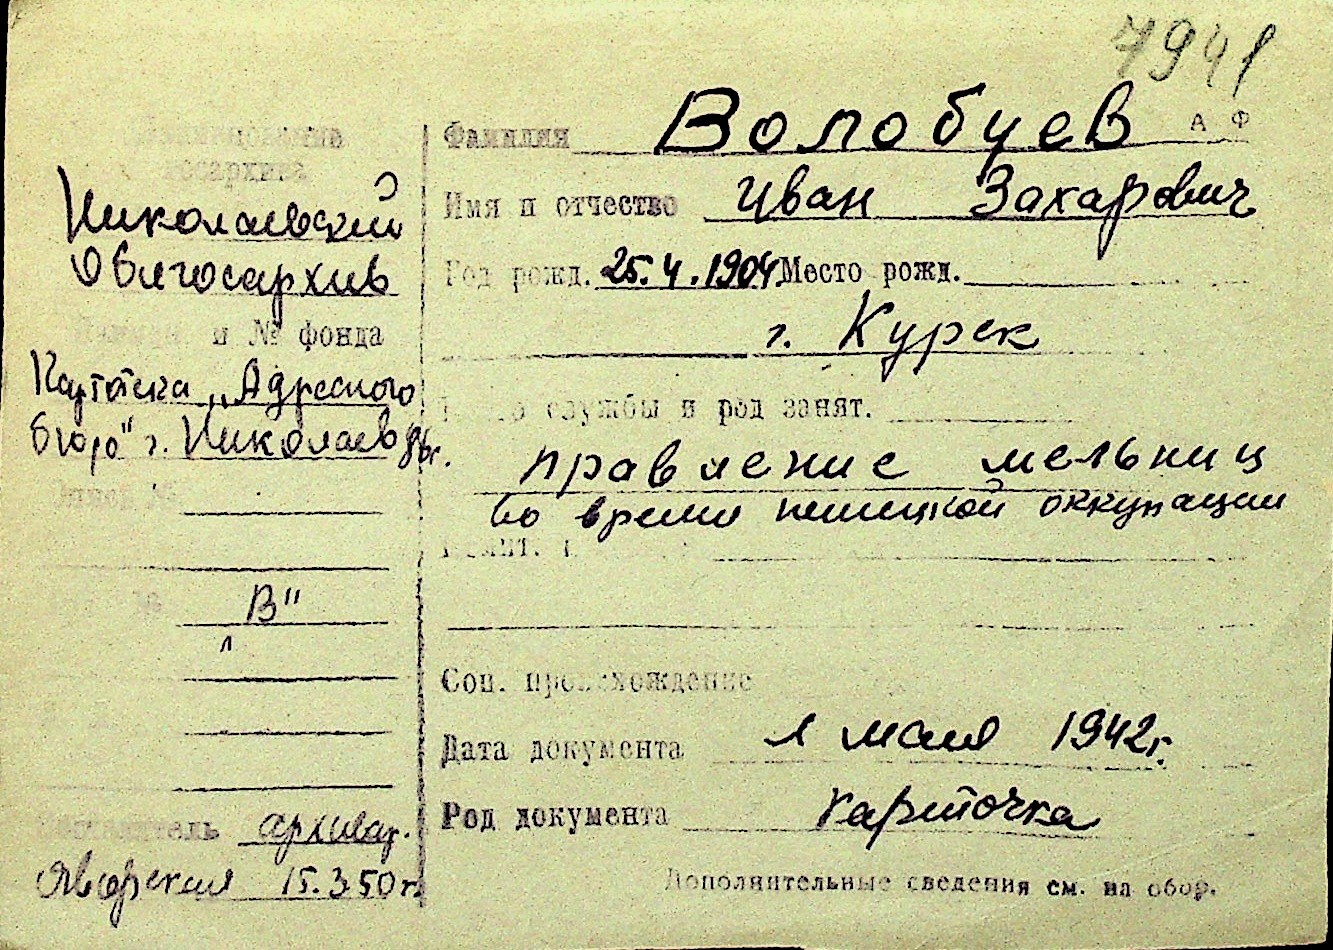 7941
наименование
госархива
Николаевский
Облгосархив
и № фонда
Картотека „Адресного
бюро" г. Николаев
Описи №
№ „В"
архивар.
Яворская 15.3.50г.
Фамилия Волобуев А Ф
Имя и отчество Иван Захарович
Год рожд. 25.4.1904 Место рожд.
г. Курск
службы и род занят.
правление мельниц
во время немецкой оккупации
Соц. происхождение
Дата документа 1 мая 1942г.
Род документа карточка
Дополнительные сведения см. на обор.